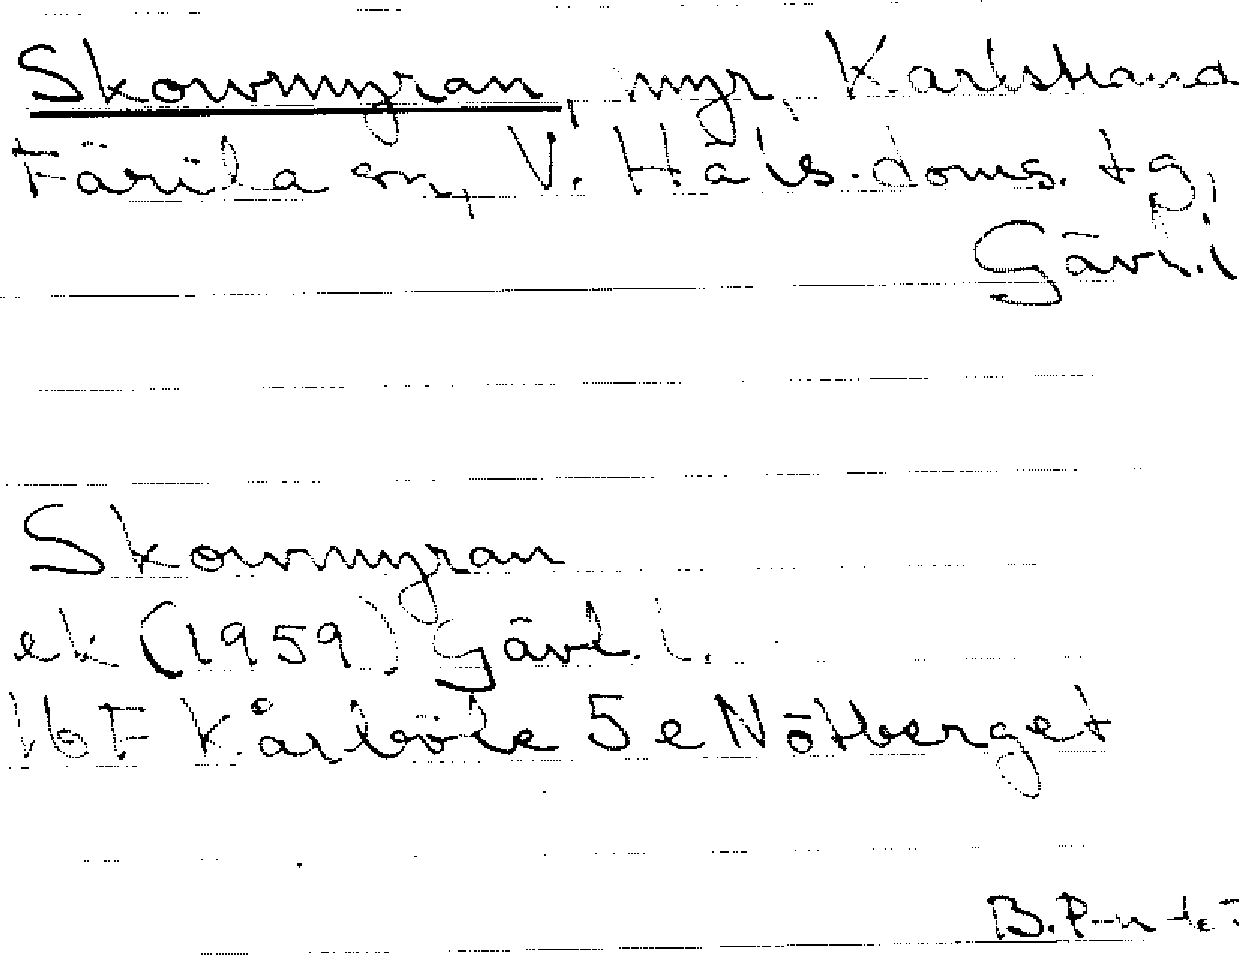 Skovmyran, myr, Karlstrand
Färila sn, V. Häls. doms. tg,
Gävl. l
Skovmyran
ek (1959) Gävl. l.
16 F Kårböle 5 e Nötberget
B. P-n